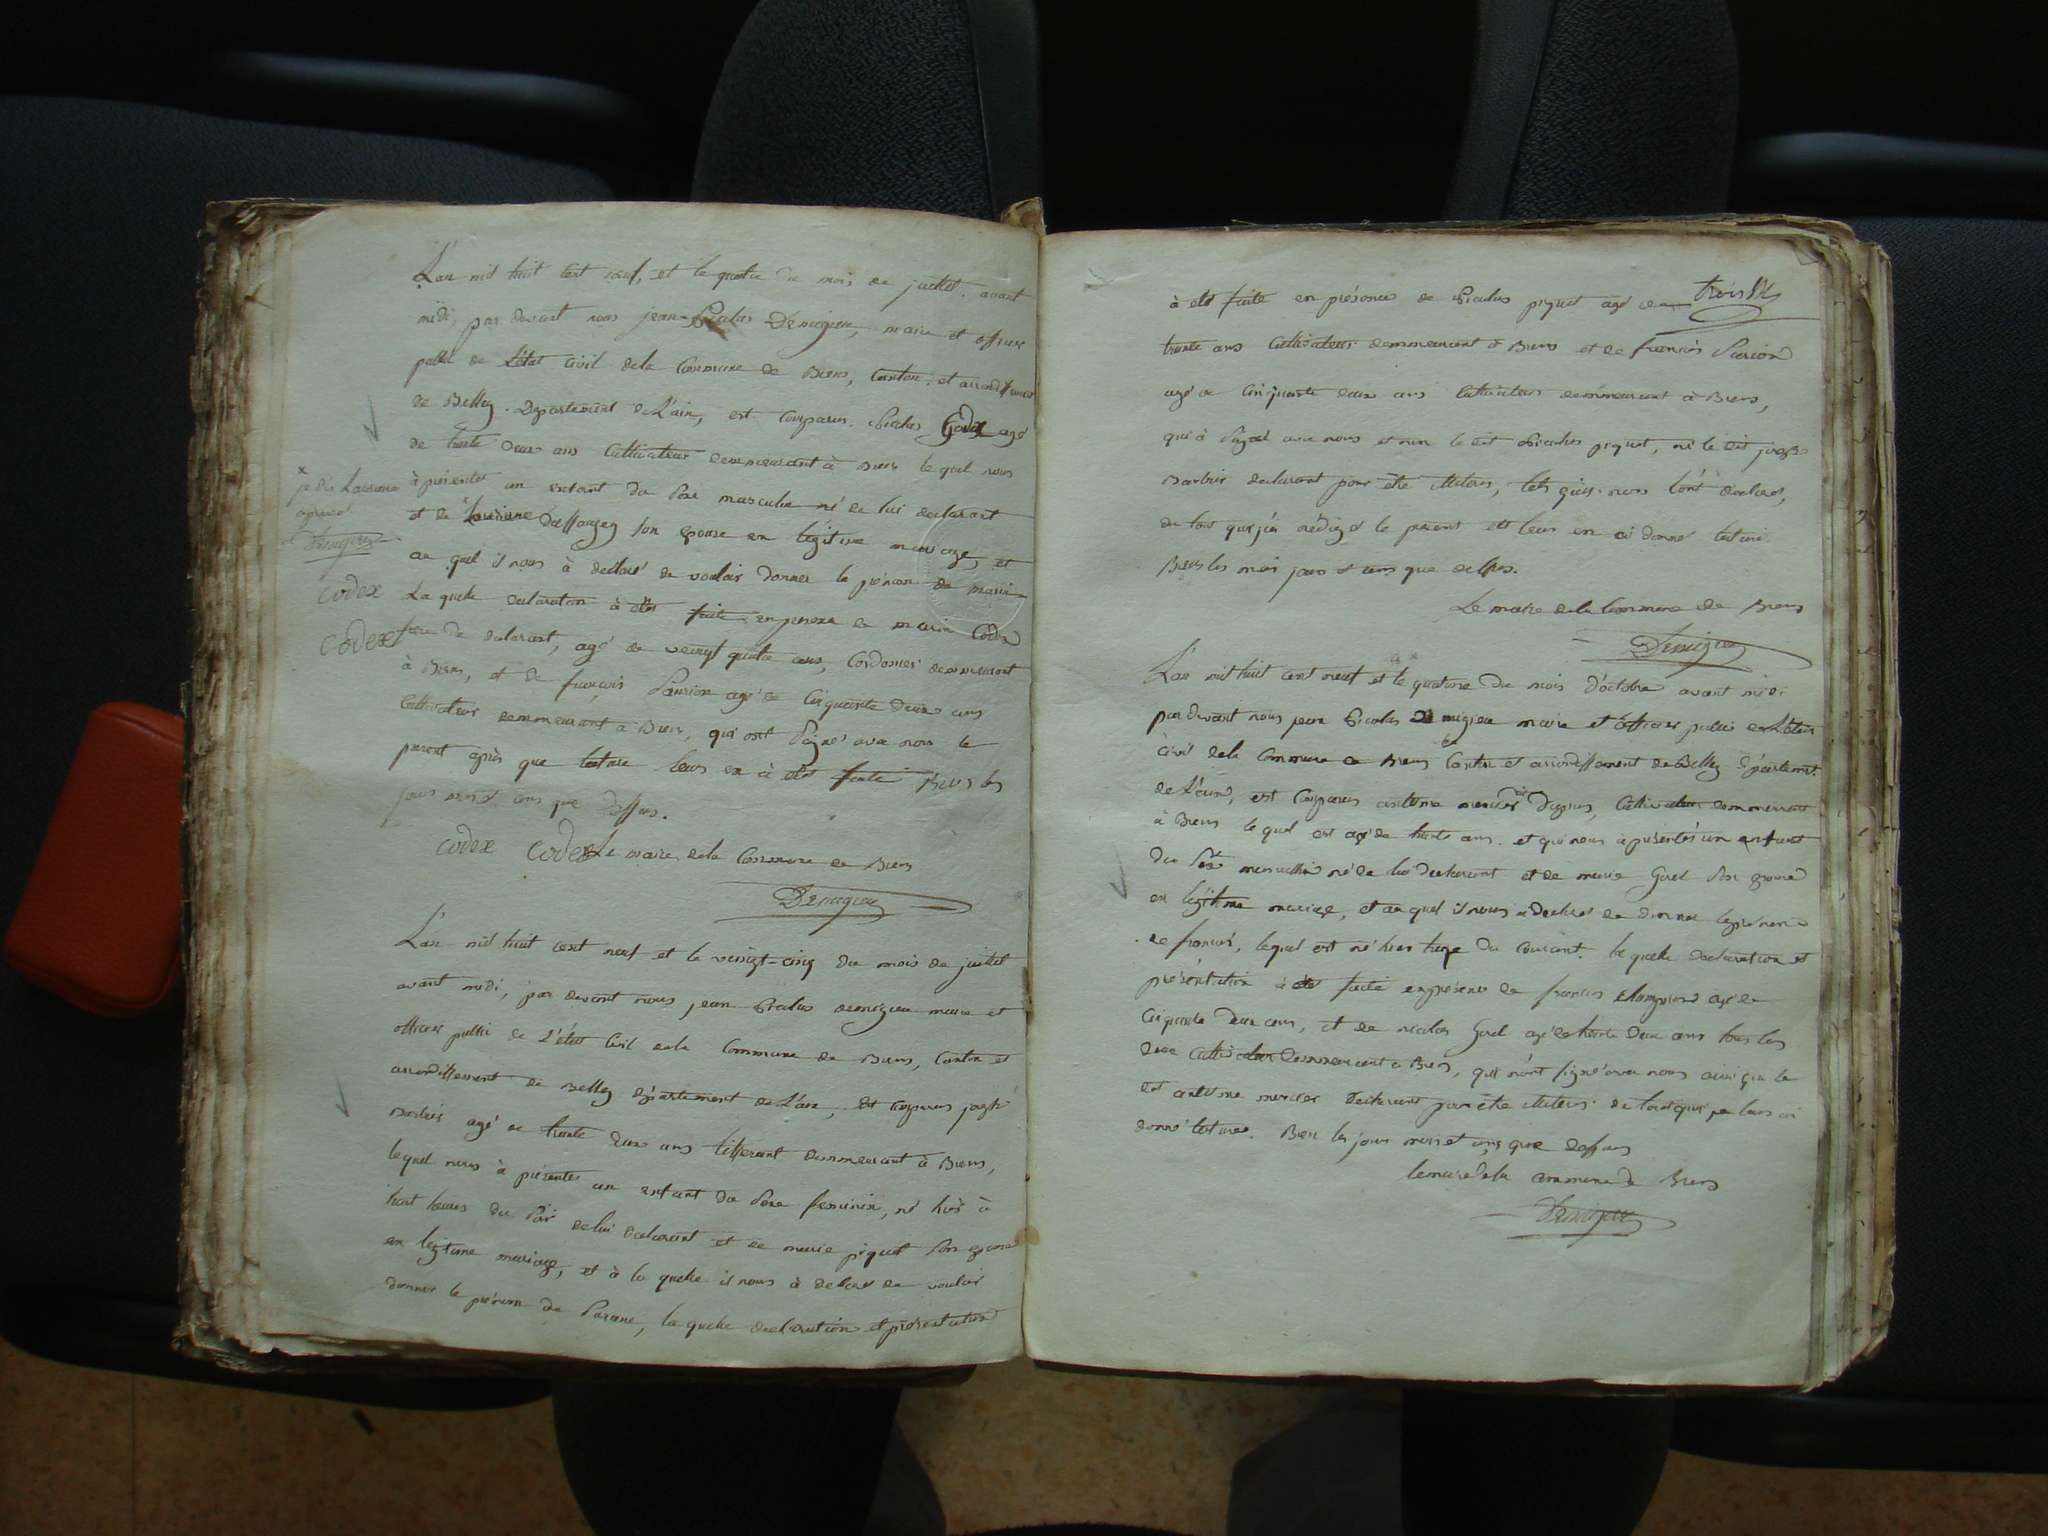 L'an mil huit cent neuf, et le quatre du mois de juillet, avant
midi, par devant nous jean-Nicolas Demigieu, maire et officier
public de L'état Civil de la Commune de Brens, Canton, et arrondissement
de Belley. Département de L'ain, est Comparus Nicolas Codex agé
de trente deux ans Cultivateur demmeurant à Brens le quel nous
à présentés un enfant du Sexe masculin né de lui declarant
et de Dallauzey son epouse en légitime mariage, et
au quel il nous à declaré de vouloir donner le prénom de marie
x je dis
aprouvé
Demigieu
codex
codex
La quelle declaration à été faite en presence de marin Codex
frere du declarant, agé de veingt quatre ans, Cordonier demmeurant
à Brens, et de françois Parion agé de Cinquante Deux ans
Cultivateur demmeurant à Brens, qui ont Signé avec nous le
present après que lecture leurs en à été faite Brens les
jours mois et ans que dessus.
codex codex Le maire de la Commune de Brens
Demigieu
L'an mil huit cent neuf et le veingt-cinq du mois de juillet
avant midi, par devant nous jean Nicolas demigieu maire et
officier public de L'état Civil de la Commune de Brens, Canton et
arrondissement de Belley département de L'ain, est Comparus joseph
Barbier agé de trente deux ans demmeurant à Brens,
lequel nous à présentés un enfant du Sexe feminin, né hier à
huit heures du Soir de lui declarant et de marie piquet Son epouse
en légitime mariage, et à la quelle il nous à declaré de vouloir
donner le prénom de la quelle declaration et présentation
trois
à été faite en présence de Nicolas piquet agé de
trente ans Cultivateur demmeurant à Brens et de francois Parion
agé de Cinquante deux ans Cultivateur demmeurant à Brens,
qui à Signé avec nous et non le dit Nicolas piquet, ni le dit joseph
Barbier declarant pour être illiteres, tels qu'ils nous l'ont declaré,
de tout quoi j'ai rédigé le présent et leurs en ai donné lecture
Brens les mois jours et ans que dessus.
Le maire de la Commune de Brens
Demigieu
L'an mil huit cent neuf et le quatorze du mois d'octobre avant midi
par devant nous jean Nicolas Demigieu maire et officier public de L'état
civil de la Commune de Brens Canton et arrondissement de Belley département
de L'ain, est Comparus antoine mercier Cultivateur demmeurant
à Brens le quel est agé de trente ans. et qui nous à présentés un enfant
du Sexe masculin né de lui declarant et de marie Gorel Son epouse
en légitime mariage, et au quel il nous à declaré de donner le prénom
de francois, lequel est né hier treize du courant. la quelle declaration et
présentation à été faite en présence de francois agé de
Cinquante deux ans, et de nicolas Gorel agé de trente deux ans tous les
deux Cultivateur demmeurant à Brens, qui n'ont signé avec nous ainsi que le
dit antoine mercier declarant pour être illiteres de tout quoi je leurs ai
donné lecture. Brens les jours mois et ans que dessus
le maire de la commune de Brens
Demigieu